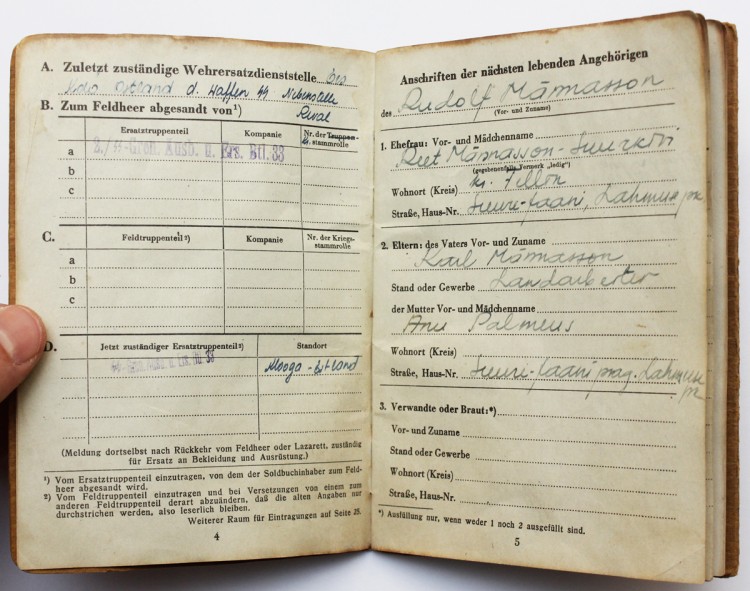 A. Zuletzt zuständige Wehrersatzdienststelle
Ostland d. Waffen SS Nebenstelle
Reval
B. Zum Feldheer abgesandt von¹)
Ersatztruppenteil Kompanie Nr. der Truppen-
stammrolle
a 2./SS-Gren. Ausb. u. Ers. Btl. 33
b
c
C. Feldtruppenteil²) Kompanie Nr. der Kriegs-
stammrolle
a
b
c
D. Jetzt zuständiger Ersatztruppenteil²) Standort
33 Klooga - Estland
(Meldung dortselbst nach Rückkehr vom Feldheer oder Lazarett, zuständig
für Ersatz an Bekleidung und Ausrüstung.)
¹) Vom Ersatztruppenteil einzutragen, von dem der Soldbuchinhaber zum Feld-
heer abgesandt wird.
²) Vom Feldtruppenteil einzutragen und bei Versetzungen von einem zum
anderen Feldtruppenteil derart abzuändern, daß die alten Angaben nur
durchstrichen werden, also leserlich bleiben.
Weiterer Raum für Eintragungen auf Seite 25.
4
Anschriften der nächsten lebenden Angehörigen
des Rudolf Männasson
(Vor- und Zuname)
1. Ehefrau: Vor- und Mädchenname
Reet Männasson
(gegebenenfalls Vermerk „ledig")
Wohnort (Kreis) Kr. Fellin
Straße, Haus-Nr. Suure-Jaani, Lahmuse
2. Eltern: des Vaters Vor- und Zuname
Karl Männasson
Stand oder Gewerbe Landarbeiter
der Mutter Vor- und Mädchenname
Anu Palmeus
Wohnort (Kreis)
Straße, Haus-Nr. Suure-Jaani Lahmuse
3. Verwandte oder Braut:*)
Vor- und Zuname
Stand oder Gewerbe
Wohnort (Kreis)
Straße, Haus-Nr.
*) Ausfüllung nur, wenn weder 1 noch 2 ausgefüllt sind.
5